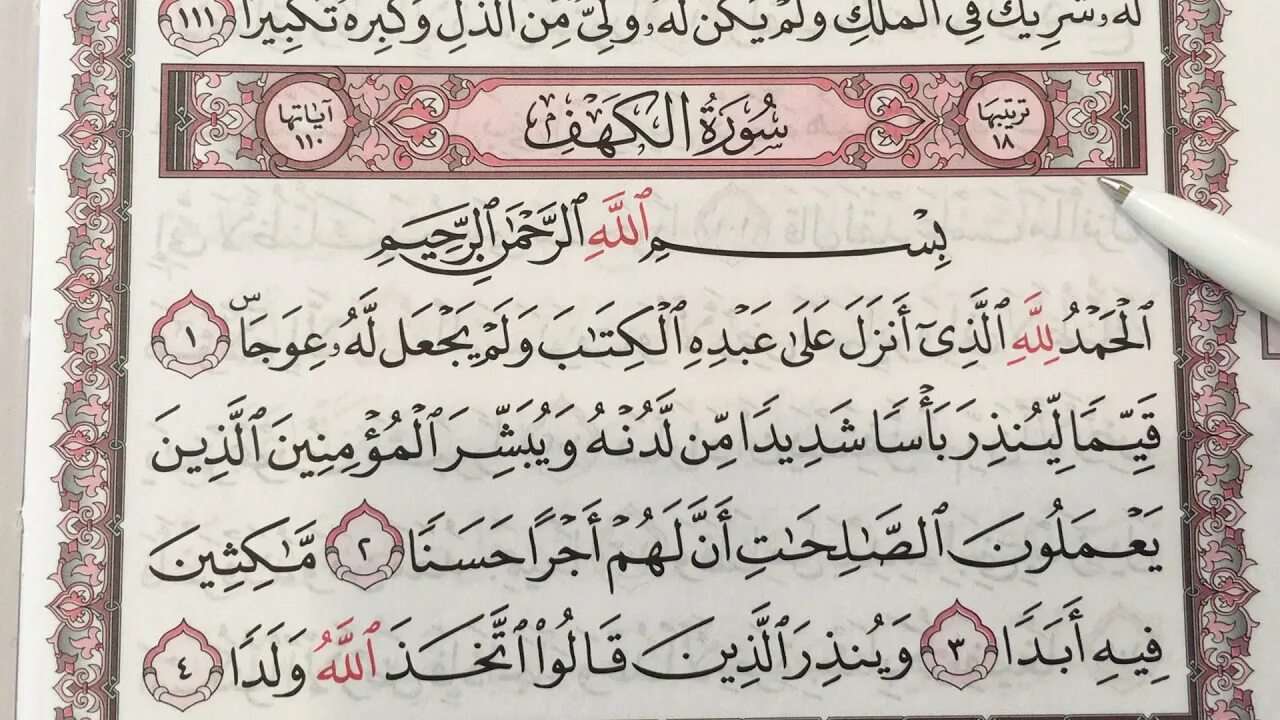 لَهُۥ شَرِيكٌ فِى ٱلْمُلْكِ وَلَمْ يَكُن لَّهُۥ وَلِىٌّ مِّنَ ٱلذُّلِّ وَكَبِّرْهُ تَكْبِيرًا ١١١
ترتيبها ١٨ سُورَةُ الكَهْفِ آياتها ١١٠
بِسْمِ ٱللَّهِ ٱلرَّحْمَٰنِ ٱلرَّحِيمِ
ٱلْحَمْدُ لِلَّهِ ٱلَّذِىٓ أَنزَلَ عَلَىٰ عَبْدِهِ ٱلْكِتَٰبَ وَلَمْ يَجْعَل لَّهُۥ عِوَجَاۜ ١
قَيِّمًا لِّيُنذِرَ بَأْسًا شَدِيدًا مِّن لَّدُنْهُ وَيُبَشِّرَ ٱلْمُؤْمِنِينَ ٱلَّذِينَ
يَعْمَلُونَ ٱلصَّٰلِحَٰتِ أَنَّ لَهُمْ أَجْرًا حَسَنًا ٢ مَّٰكِثِينَ
فِيهِ أَبَدًا ٣ وَيُنذِرَ ٱلَّذِينَ قَالُوا۟ ٱتَّخَذَ ٱللَّهُ وَلَدًا ٤